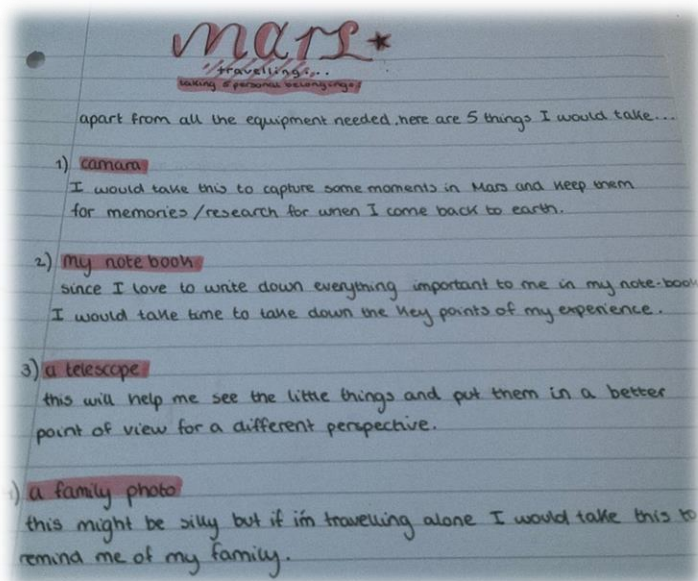 mars
travelling...
taking 5 personal belongings!
apart from all the equipment needed, here are 5 things I would take...
1) camara
I would take this to capture some moments in Mars and keep them
for memories / research for when I come back to earth.
2) my note book
since I love to write down everything important to me in my note-book
I would take time to take down the key points of my experience.
3) a telescope
this will help me see the little things and put them in a better
point of view for a different perspective.
) a family photo
this might be silly but if i'm travelling alone I would take this to
remind me of my family.